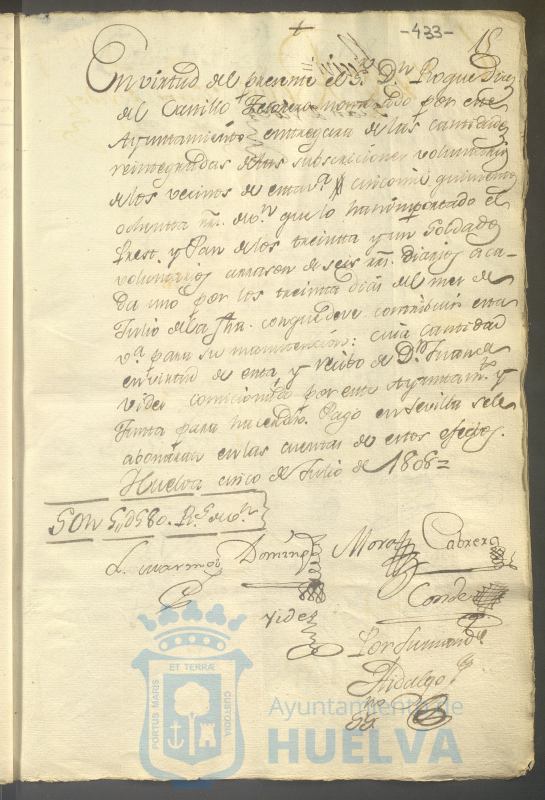 -433-
15
En virtud del presente el S. Dn Roque Diaz
del Castillo Thesorero nombrado por este
Ayuntamiento entregara de las cantidades
reintegradas de las subscriciones voluntarias
de los vecinos de esta va cinco mil quinientos
ochenta rrs. de vn que lo han importado el
Prest. y Pan de los treinta y un Soldados
voluntarios a razon de seis rrs. diarios a ca-
da uno por los treinta dias del mes de
Julio de la fha. con que deve contribuir esta
va para su manutencion: cuia cantidad
en virtud de esta y recibo de Dn Juan de
Vides comicionado por este Ayuntamto y
Junta para hacer dho. Pago en Sevilla se le
abonaran en las cuentas de estos efectos.
Huelva cinco de Julio de 1808=
SON 5,,d580. Rs de vn
Domingz Mora Cabrera
Conde
Vides
Por su mando
Hidalgo
PORTUS MARIS ET TERRÆ CUSTODIA
Ayuntamiento de
HUELVA